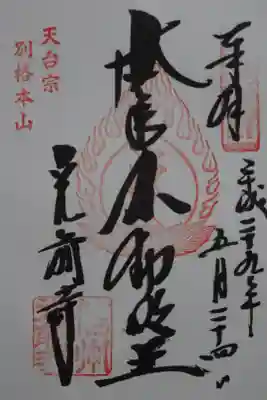 奉拝
平成二十九年
五月二十四日
不動明王
天台宗
別格本山
光前寺